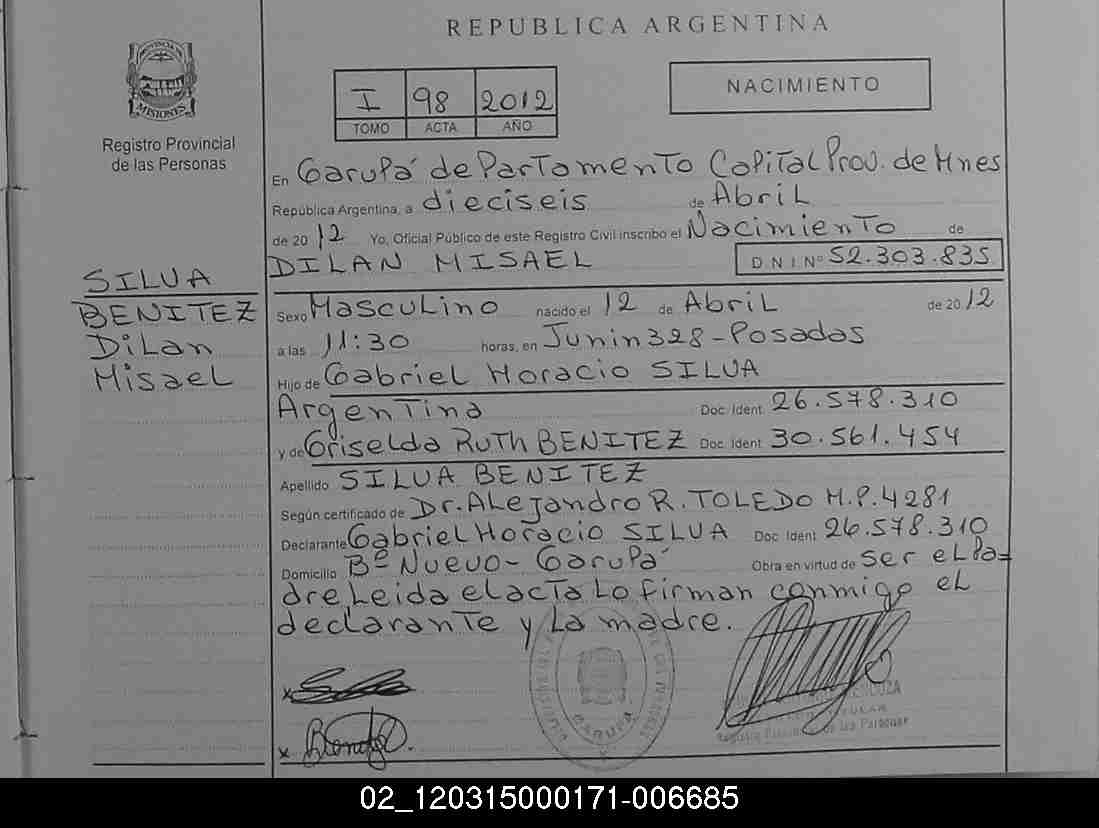 REPUBLICA ARGENTINA
PROVINCIA DE
MISIONES
Registro Provincial
de las Personas
I 98 2012
TOMO ACTA AÑO
NACIMIENTO
En Garupá departamento Capital Prov. de Mnes
República Argentina, a dieciseis de Abril
de 20 12 Yo, Oficial Público de este Registro Civil inscribo el Nacimiento de
DILAN MISAEL D.N.I. Nº 52.303.835
SILVA
BENITEZ
Dilan
Misael
Sexo Masculino nacido el 12 de Abril de 20 12
a las 11:30 horas, en Junin 328 - Posadas
Hijo de Gabriel Horacio SILVA
Argentina Doc. Ident. 26.578.310
y de Griselda Ruth BENITEZ Doc. Ident. 30.561.454
Apellido SILVA BENITEZ
Según certificado de Dr. Alejandro R. TOLEDO M.P. 4281
Declarante Gabriel Horacio SILVA Doc. Ident. 26.578.310
Domicilio Bº Nuevo - Garupá Obra en virtud de ser el pa=
dre Leida el acta lo firman conmigo el
declarante y la madre.
GARUPA
02_120315000171-006685